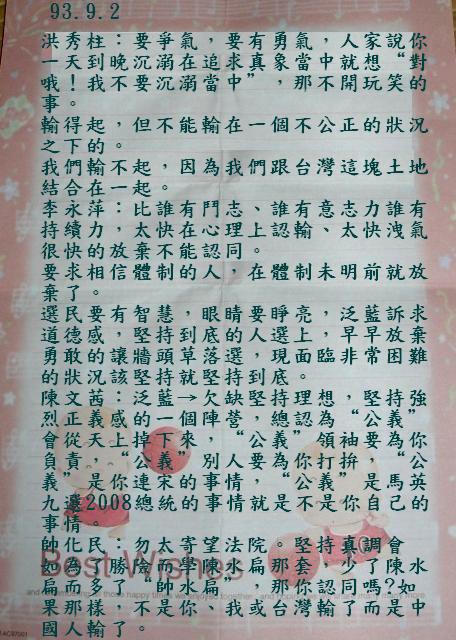 93.9.2
洪秀柱：要爭氣，要有勇氣，人家說你
一天到晚沉溺在追求真象當中就想“對
哦！我不要沉溺當中”，那不開玩笑的
事。
輸得起，但不能輸在一個不公正的狀況
之下的。
我們輸不起，因為我們跟台灣這塊土地
結合在一起。
李永萍：比誰有鬥志、誰有意志力誰有
持續力，太快在心理上認輸、太快洩氣
很快的放棄不能認同。
要求相信體制的人，在體制未明前就放
棄了。
選民要有智慧，眼睛要睜亮，泛藍訴求
道德感，堅持到底的人選上，早早放棄
勇敢的讓牆頭草落選，現面臨非常困難
的狀況該堅持就堅持到底。
陳文茜：泛藍→欠缺堅持理想，堅持強
烈正義感的一個陣營，總認為“公義”
會從天上掉下來，“公義”領袖要為你
負責，“公義”別人要為你打拚，“公
義”是你連宋的事情，“公義”是馬英
九選2008總統的事情就是不是你自己的
事情。
帥化民：勿太寄望法院。堅持真調會
如為求勝險而學陳水扁那套，少了陳水
扁而多了“帥水扁”，那你認同嗎?如
果那樣，不是你、我或台灣輸了而是中
國人輸了。
Best Wishes